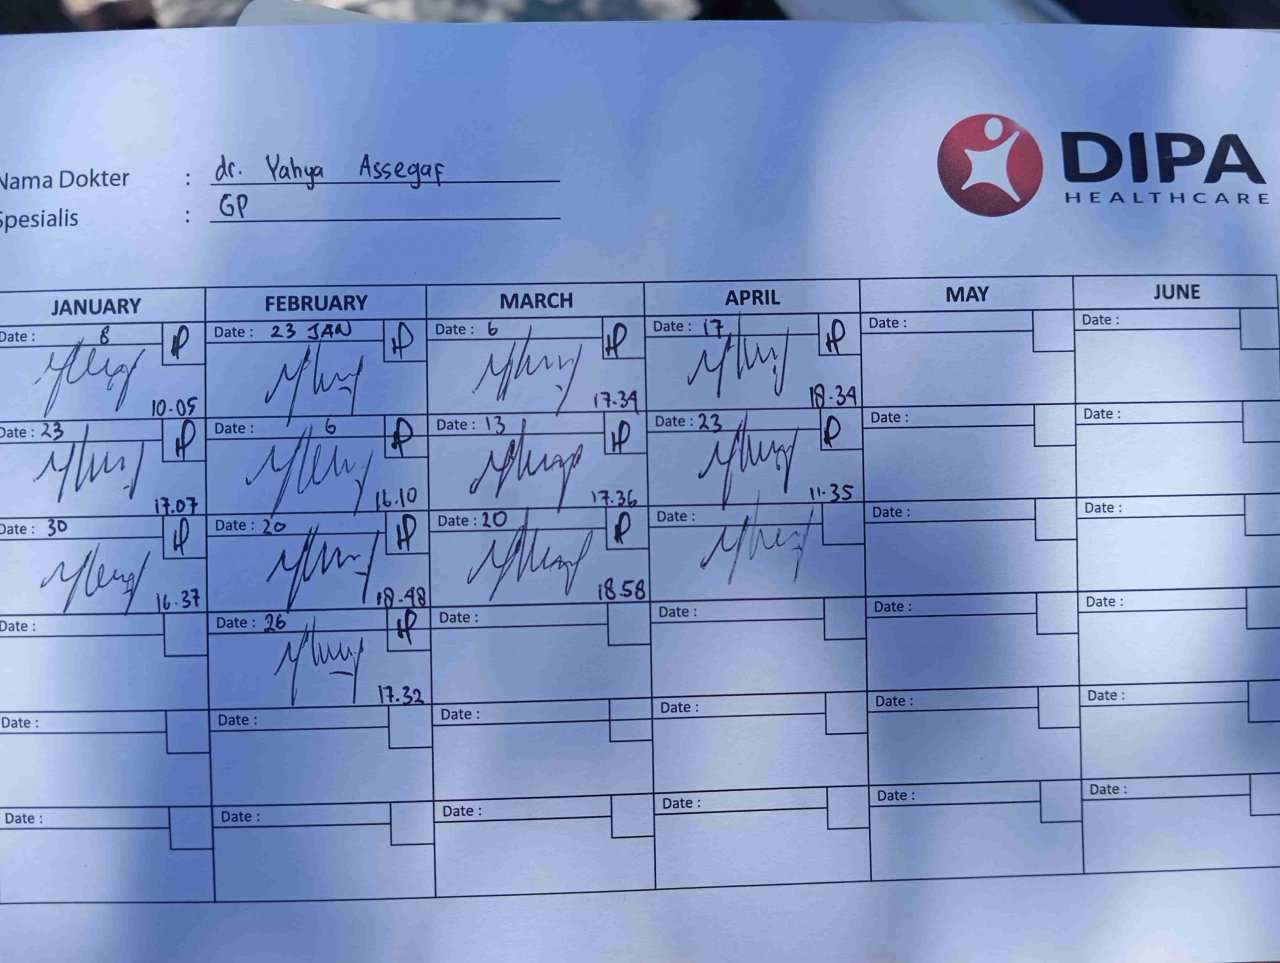 DIPA
HEALTHCARE
Nama Dokter : dr. Yahya Assegaf
Spesialis : GP
JANUARY FEBRUARY MARCH APRIL MAY JUNE
Date : 8 Date : 23 JAN Date : 6 Date : 17 Date : Date :
10.05 17.34 18.34
Date : 23 Date : 6 Date : 13 Date : 23 Date : Date :
17.07 16.10 17.36 11.35
Date : 30 Date : 20 Date : 20 Date : Date : Date :
16.37 18.48 18.58
Date : Date : 26 Date : Date : Date : Date :
17.32
Date : Date : Date : Date : Date : Date :
Date : Date : Date : Date : Date : Date :